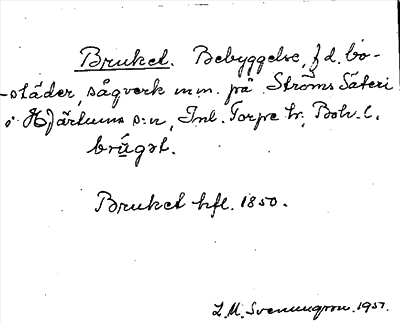 Bruket. Bebyggelse, f.d. bo-
-städer, sågverk m.m. på Ströms Säteri
i Hjärtums s:n, Inl. Torpe hr, Boh. l.
brùgət.
Bruket hfl. 1850.
L.M. Svenungson. 1957.